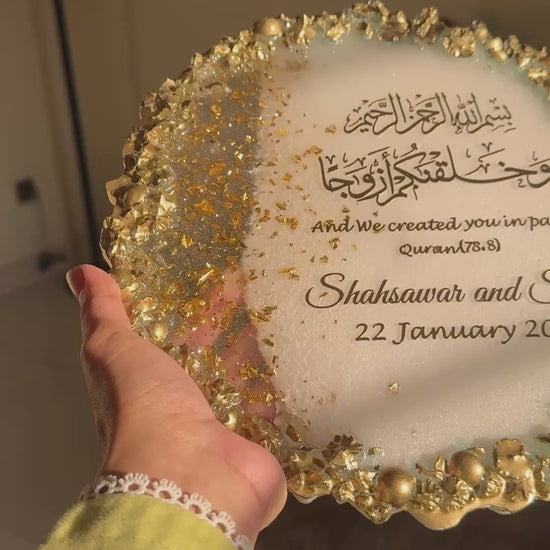 بسم الله الرحمن الرحيم
وخلقنكم أزوجا
And We created you in pa
Quran(78:8)
Shahsawar and S
22 January 20